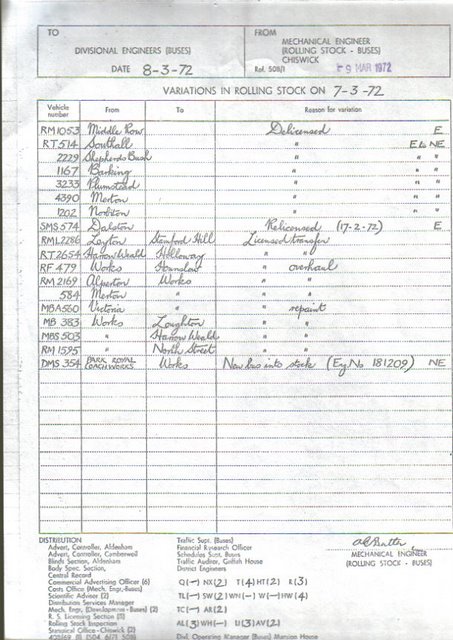 TO
DIVISIONAL ENGINEERS (BUSES)
DATE 8-3-72
FROM
MECHANICAL ENGINEER
(ROLLING STOCK - BUSES)
CHISWICK
Ref. 508/1 9 MAR 1972
VARIATIONS IN ROLLING STOCK ON 7-3-72
Vehicle number From To Reason for variation
RM1053 Middle Row Delicensed E
RT514 Southall " E & NE
2229 Shepherds Bush " " "
1167 Barking " " "
3233 Plumstead " " "
4390 Merton " " "
1202 Norbiton " " "
SMS574 Dalston Relicensed (17-2-72) E
RML2286 Leyton Stamford Hill Licensed transfer
RT2654 Harrow Weald Holloway " "
RF 479 Works Hounslow " overhaul
RM2169 Alperton Works " "
584 Merton " " "
MBA560 Victoria " " repaint
MB 383 Works Loughton " "
MBS503 " Harrow Weald " "
RM1595 " North Street " "
DMS 354 PARK ROYAL COACHWORKS Works New bus into stock (Eng. No 181209) NE
DISTRIBUTION
Advert. Controller, Aldenham
Advert. Controller, Camberwell
Blinds Section, Aldenham
Body Spec. Section,
Central Record
Commercial Advertising Officer (6)
Costs Office (Mech. Engr.-Buses)
Scientific Adviser (2)
Distribution Services Manager
Mech. Engr. (Development - Buses) (2)
R. S. Licensing Section (2)
Rolling Stock Inspection
Statistical Office - Chiswick (2)
Traffic Supt. (Buses)
Financial Research Officer
Schedules Supt. Buses
Traffic Auditor, Griffith House
District Engineers
Q(-) NX(2) T(4) HT(2) R(3)
TL(-) SW(2) WN(-) W(-) HW(4)
TC(-) AR(2)
AL(3) WH(-) U(3) AV(2)
Divl. Operating Manager (Buses) Mansion House
MECHANICAL ENGINEER
(ROLLING STOCK - BUSES)